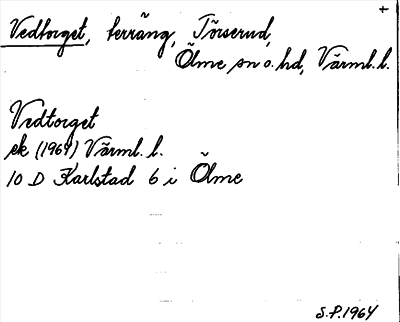 +
Vedtorget, terräng, Törserud,
Ölme sn o. hd, Värml. l.
Vedtorget
ek (1964) Värml. l.
10 D Karlstad 6 i Ölme
S.P. 1964